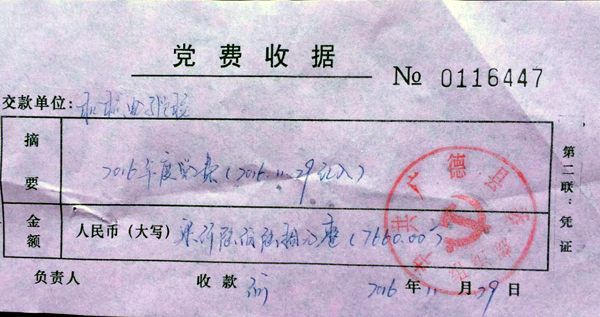 党费收据
№ 0116447
交款单位:
摘要 2016年度党费(2016.11.29汇入)
金额 人民币(大写) 柒仟陆佰陆拾元整(7660.00)
第二联:凭证
负责人 收款 2016年11月29日